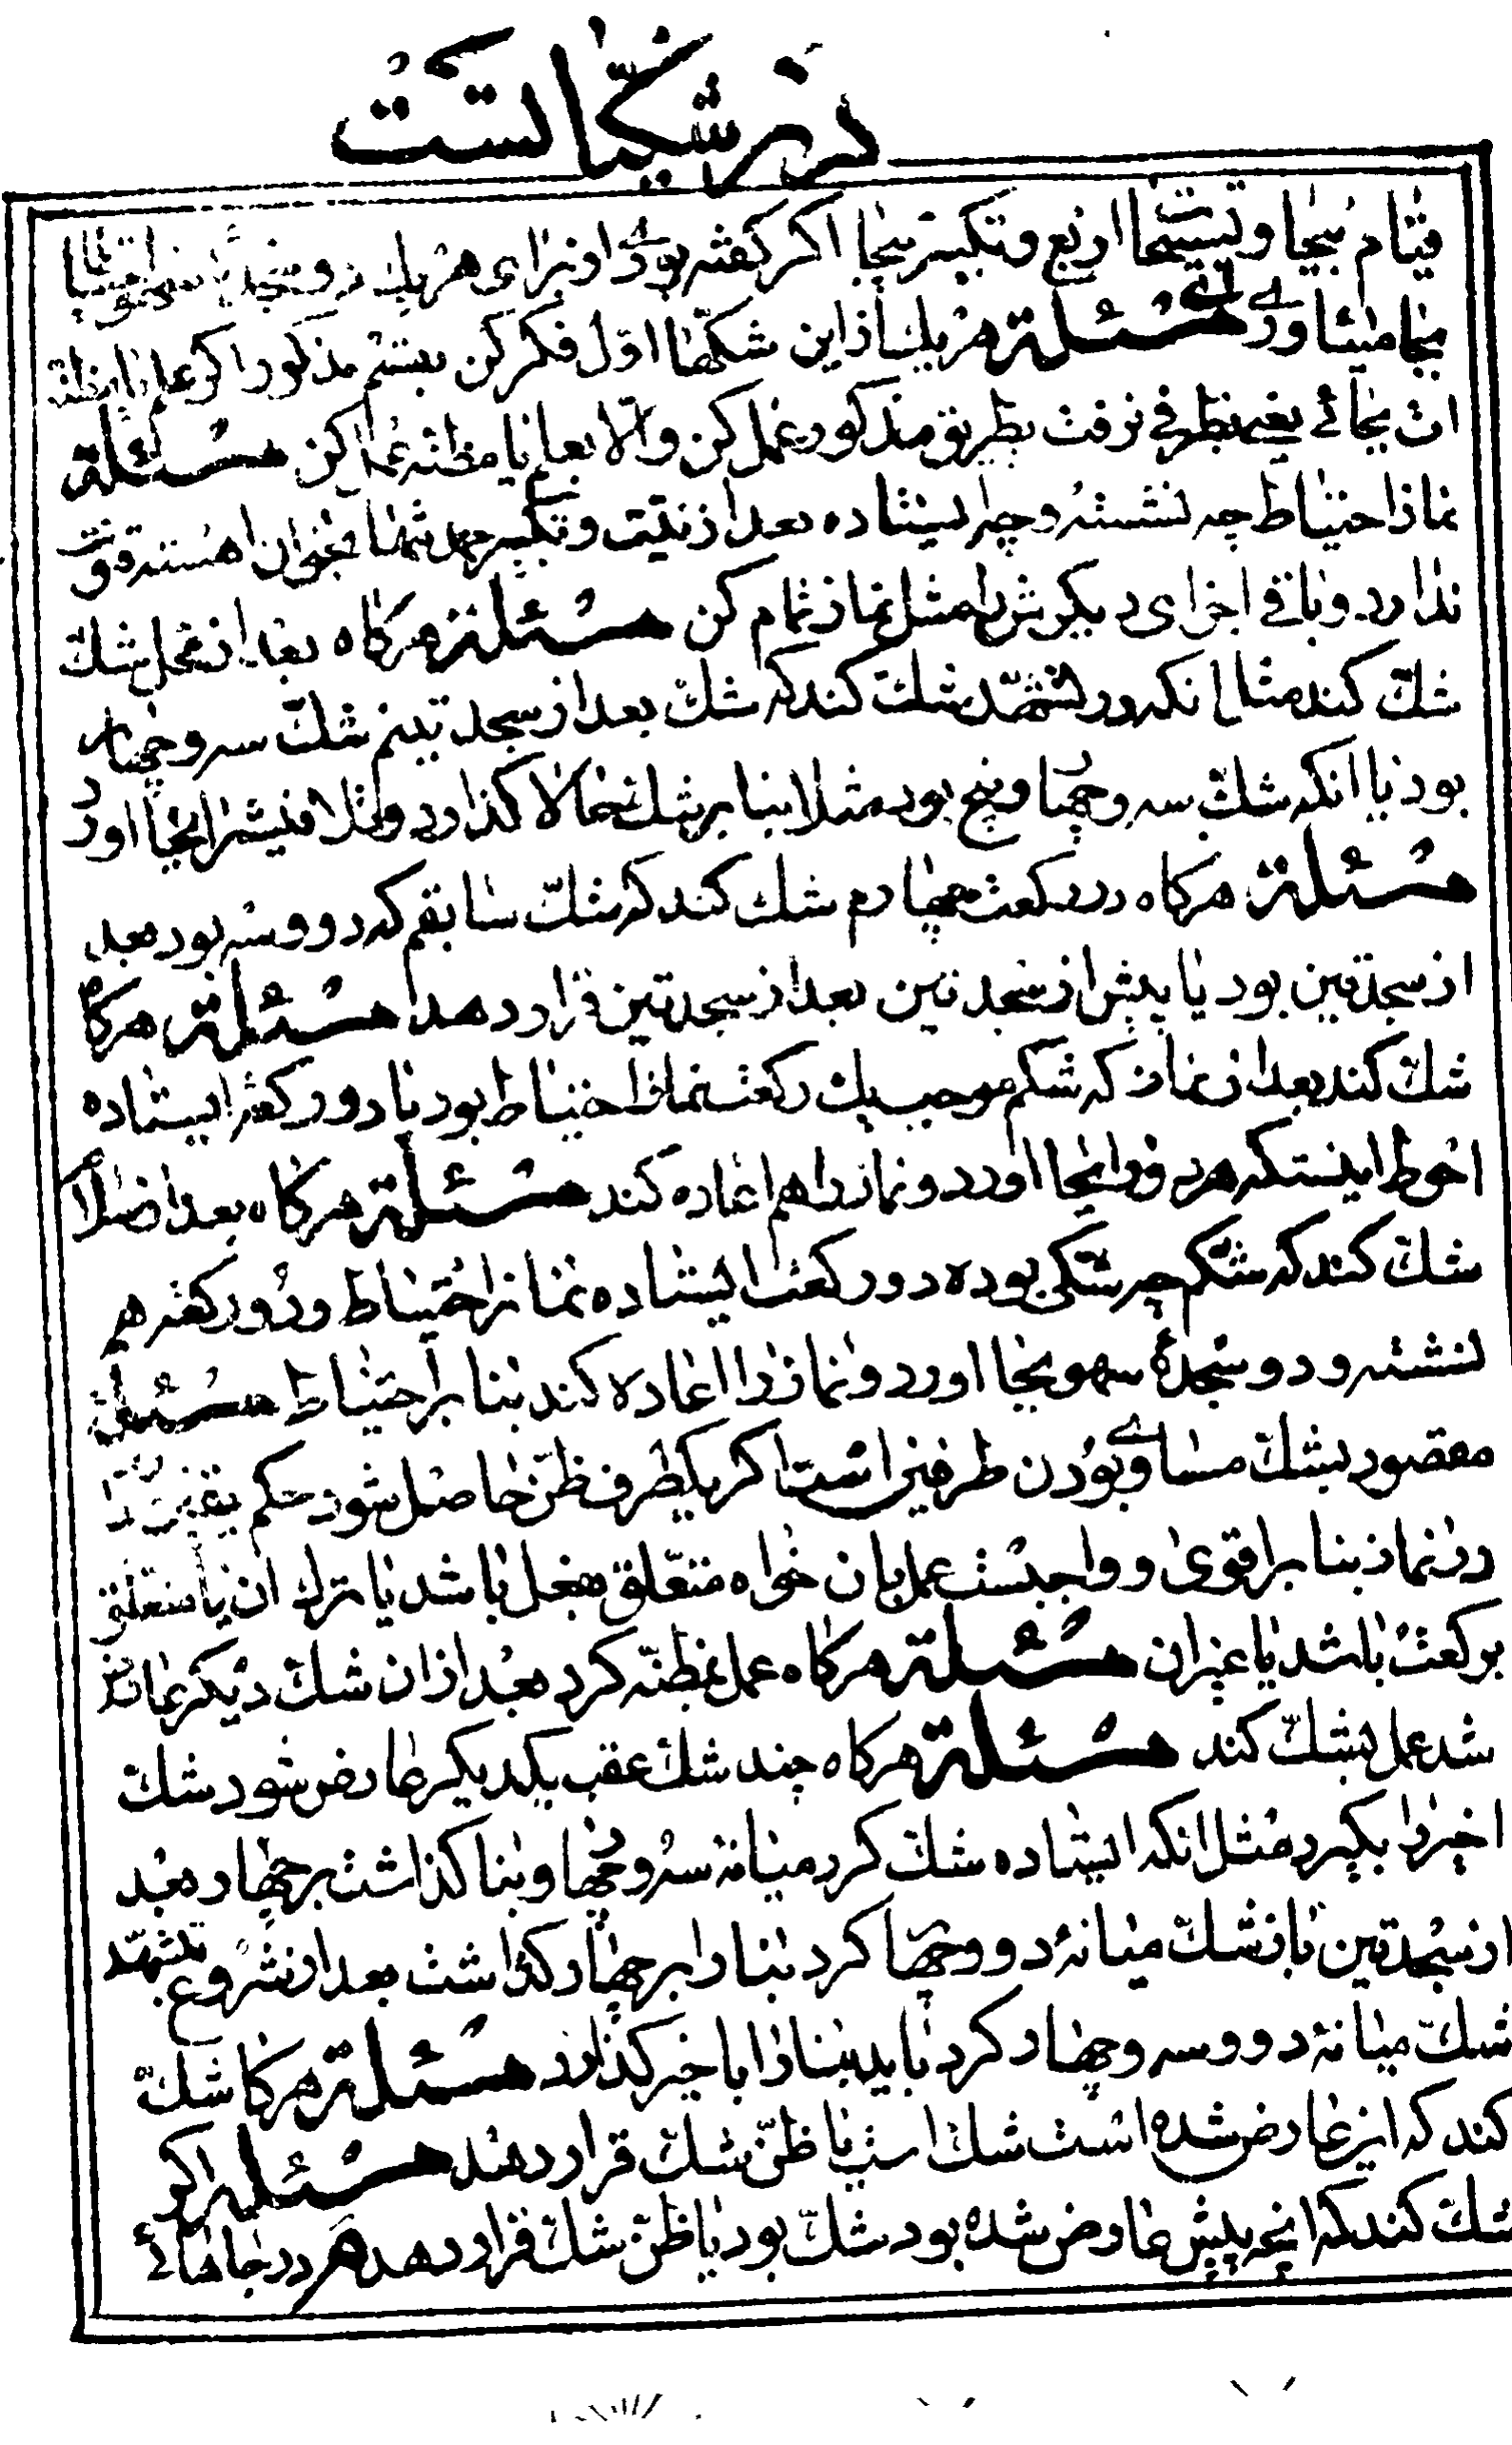 در شکیاتست
قیام بیجا و تسبیحات اربع و تکبیر بیجا اکر کفته بودی از برای هر یک دو سجده سهو احتیاطا
بجا میاوری مسئلة هر یک از این شکها اول فکر کن بعد مذکور اکر علم یا مظنه
ات بجائی یعنی بطرفی نرفت بطریق مذکور عمل کن والا بعلم یا مظنه عمل کن مسئلة
نماز احتیاط چه نشسته و چه ایستاده بعد از نیت و تکبیر حمد تنها بخوان اهسته قنوت
ندارد و باقی اجزای دیکرش را مثل نماز تمام کن مسئلة هرکاه بعد از محل شک
شک کند مثل انکه در تشهد شک کند که شک بعد از سجدتینم شک سه و چهار
بود یا انکه شک سه و چهار و پنج بود مثلا بنا بر شک حالا کذارد و عملا فیشرا بجا اورد
مسئلة هرکاه در رکعت چهارم شک کند که شک سابقم که دو و سه بود بعد
از سجدتین بود یا پیش از سجدتین بعد از سجدتین قرار دهد مسئلة هرکاه
شک کند بعد از نماز که شکم موجب یک رکعت نماز احتیاط بود یا دو رکعت ایستاده
احوط اینستکه هر دو را بجا اورد و نماز را هم اعاده کند مسئلة هرکاه بعد اصلا
شک کند که شکم چه شکی بوده دو رکعت ایستاده نماز احتیاط و دو رکعت هم
نشسته و دو سجدهٔ سهو بجا اورد و نماز را اعاده کند بنا بر احتیاط مسئلة
مقصود بشک مساوی بودن طرفین است اکر بیکطرف ظن حاصل شود حکم یقین دارد
در نماز بنا بر اقوی و واجبست عمل بان خواه متعلق بفعل باشد یا بترک ان یا متعلق
برکعت باشد یا غیر ان مسئلة هرکاه عمل بمظنه کرد بعد از ان شک دیکر عارض
شد عمل بشک کند مسئلة هرکاه چند شک عقب یکدیکر عارض شود شک
اخیر را بکیرد مثل انکه ایستاده شک کرد میانه سه و چهار و بنا کذاشت بر چهار بعد
از سجدتین باز شک میانهٔ دو و چهار کرد بنا را بر چهار کذاشت بعد از شروع بتشهد
شک میانهٔ دو و سه و چهار کرد باید بنا را باخیر کذارد مسئلة هرکاه شک
کند که انچه عارض شده است شک است یا ظن شک قرار دهد مسئلة اکر
شک کند که انچه پیش عارض شده بود شک بود یا ظن شک قرار دهد هر در جاهائی